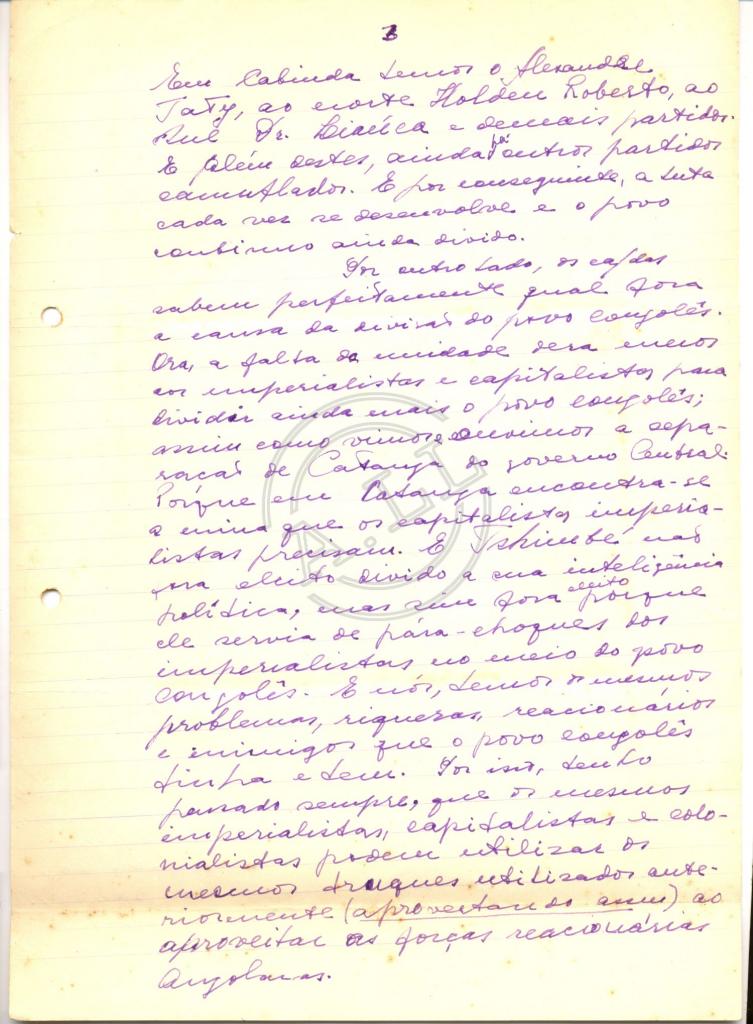 3
Em Cabinda temos o Alexandre
Taty, ao norte Holden Roberto, ao
Sul Dr. Liaúca e demais partidos.
E além destes, ainda há outros partidos
camuflados. E por conseguinte, a luta
cada vez se desenvolve e o povo
continuo ainda divido.
Por outro lado, os cdas
sabem perfeitamente qual fora
a causa da divisão do povo congolês.
Ora, a falta de unidade dera meios
aos imperialistas e capitalistas para
dividir ainda mais o povo congolês;
assim como vimos e ouvimos a sepa-
ração de Catanga do governo Central.
Porque em Catanga encontra-se
a mina que os capitalistas imperia-
listas precisam. E Tshimbé não
fora eleito divido a sua inteligência
política, mas sim fora eleito porque
ele servia de pára-choques dos
imperialistas no meio do povo
congolês. E nós, temos os mesmos
problemas, riquezas, reacionários
e inimigos que o povo congolês
tinha e tem. Por isso, tenho
pensado sempre, que os mesmos
imperialistas, capitalistas e colo-
nialistas podem utilizar os
mesmos truques utilizados ante-
riormente (aproveitando assim) ao
aproveitar as forças reacionárias
Angolanas.
A.LL